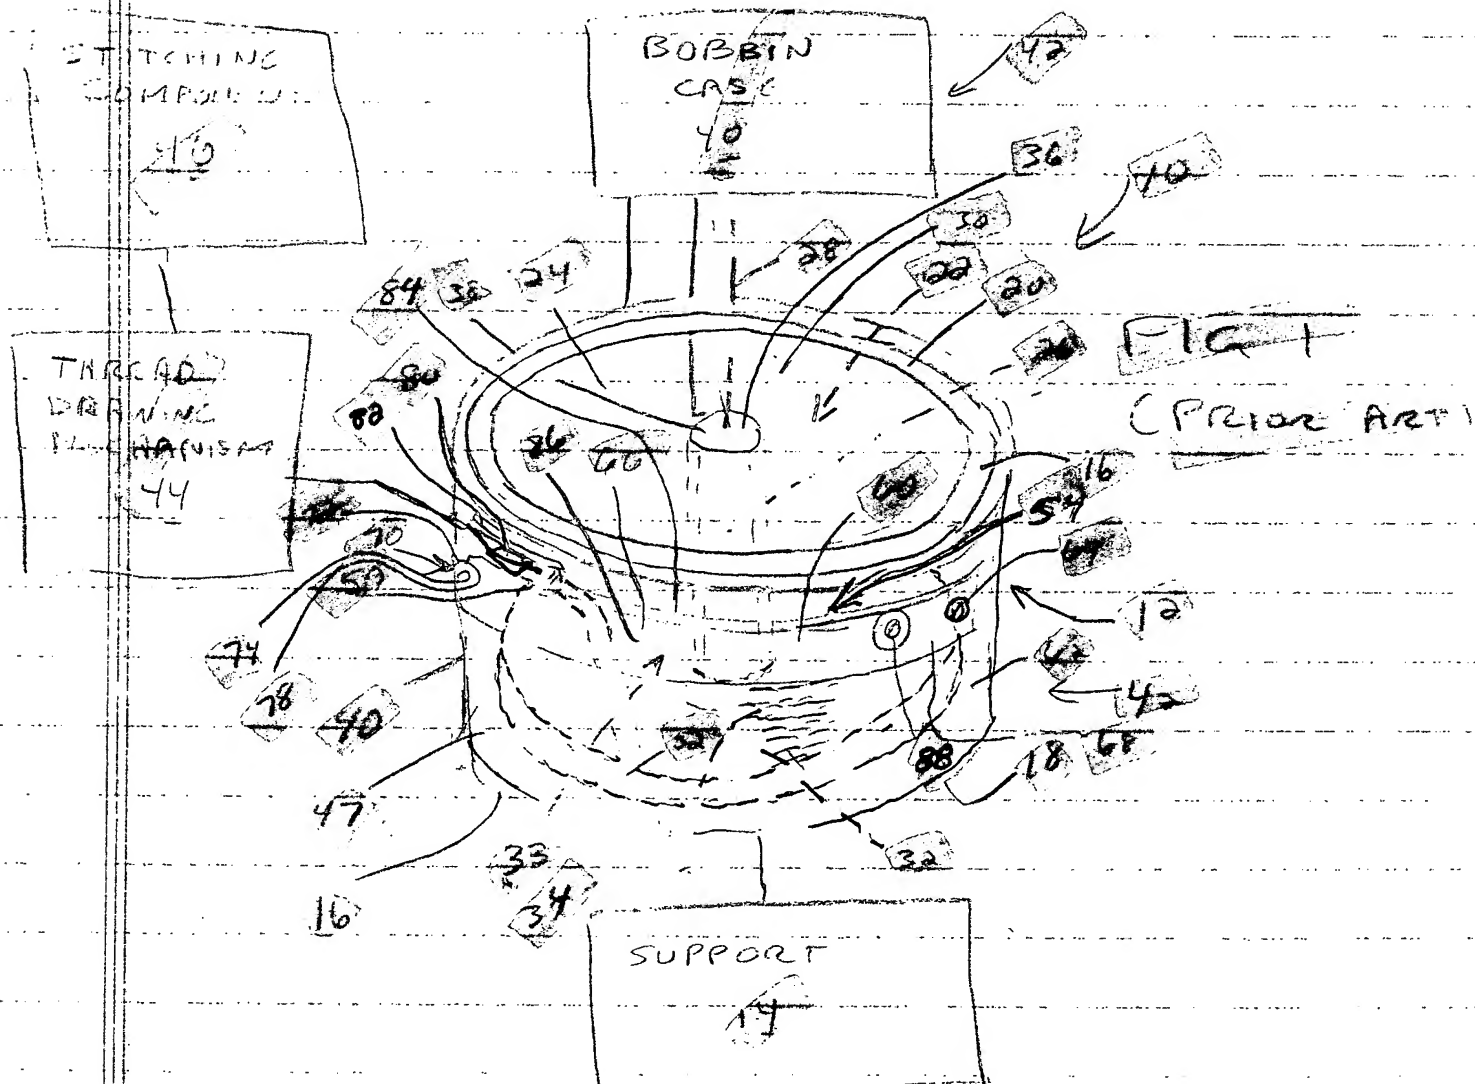 STITCHING
COMPONENT
46
BOBBIN
CASE
40
42
36
40
30
28
22
20
84
38
24
26
FIG 1
(PRIOR ART)
THREAD
DRAWING
MECHANISM
44
80
82
86
66
60
16
54
64
70
12
74
78
40
42
47
88
18
68
32
33
34
16
SUPPORT
14